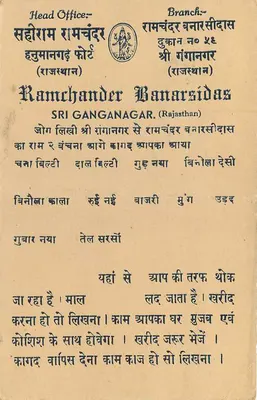 Head Office:-
सहीराम रामचंदर
हनुमानगढ़ फोर्ट
(राजस्थान)
Branch:-
रामचंदर बनारसीदास
दुकान नो ५६
श्री गंगानगर
(राजस्थान)
Ramchander Banarsidas
SRI GANGANAGAR. (Rajasthan)
जोग लिखी श्री गंगानगर से रामचंदर बनारसीदास
का राम २ बंचना आगे कागद आपका आया
चना बिल्टी दाल बिल्टी गुड़ नया बिनौला देसी
बिनौला काला रुई नई बाजरी मुंग उड़द
गुवार नया तेल सरसों
यहां से आप की तरफ थोक
जा रहा है। माल लद जाता है। खरीद
करना हो तो लिखना। काम आपका घर मुजब एवं
कोशिश के साथ होवेगा। खरीद जरूर भेजें।
कागद वापिस देना काम काज हो सो लिखना।